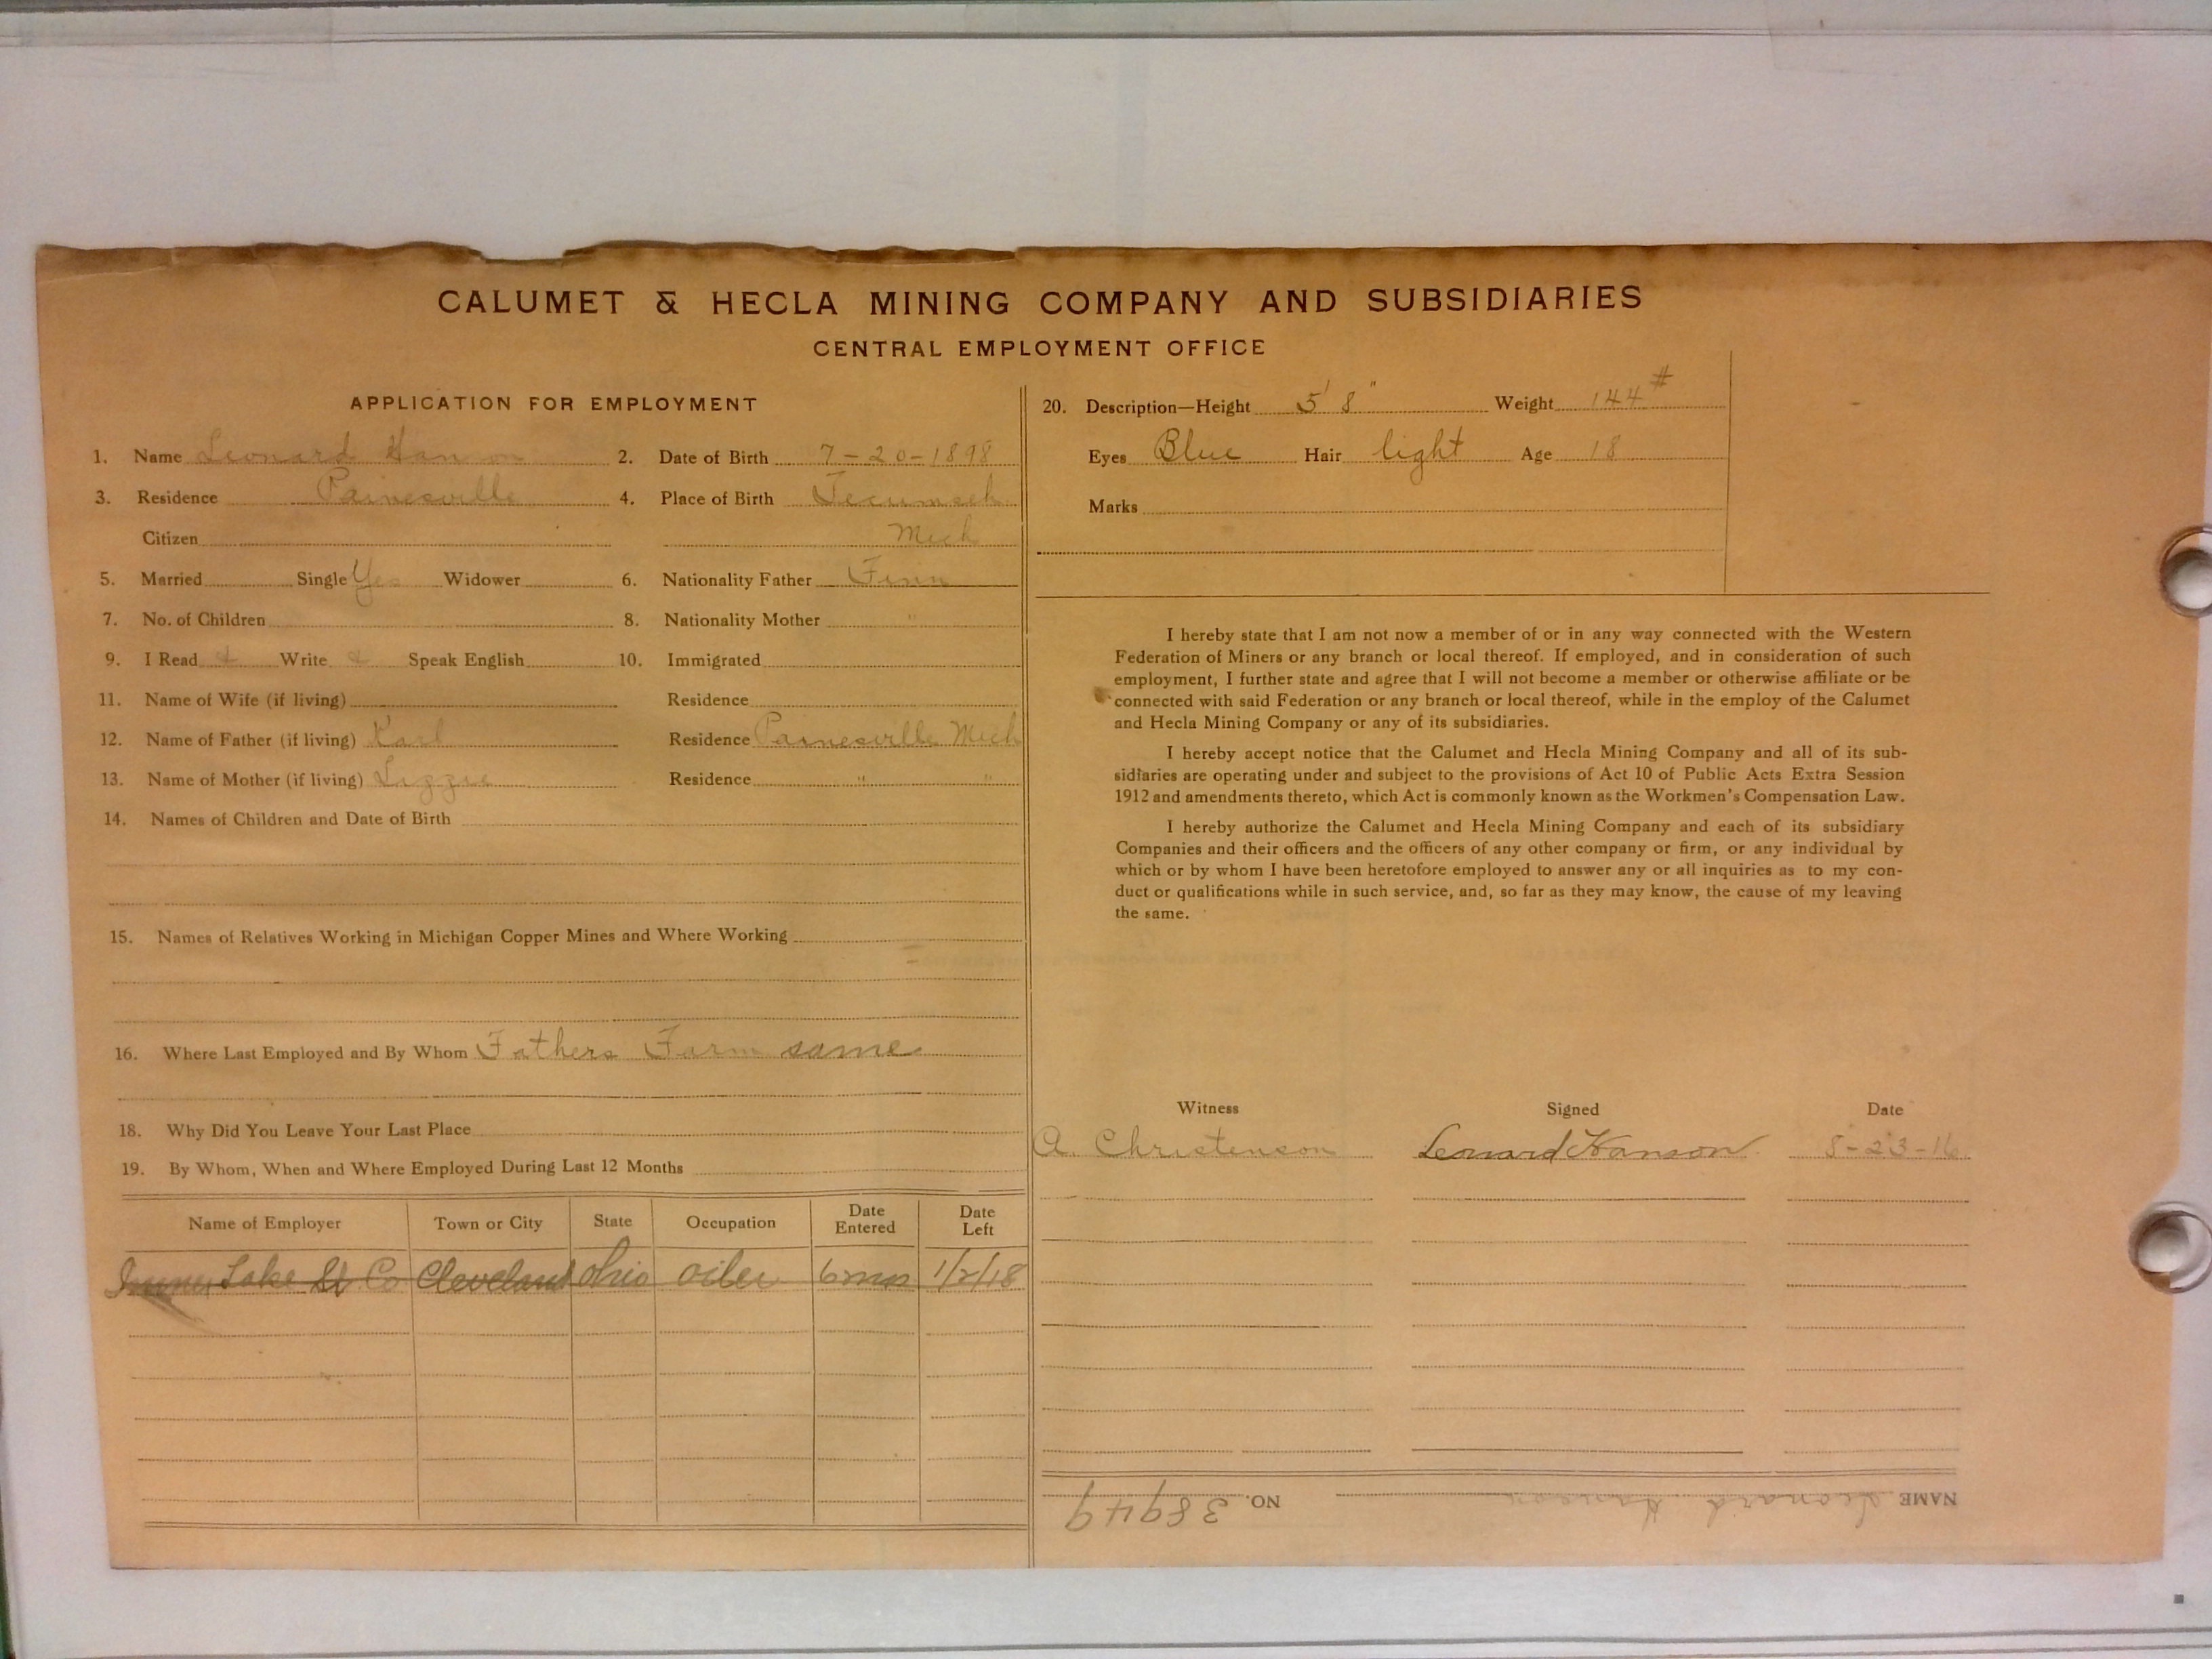 CALUMET & HECLA MINING COMPANY AND SUBSIDIARIES
CENTRAL EMPLOYMENT OFFICE
APPLICATION FOR EMPLOYMENT
1. Name Leonard Hanson 2. Date of Birth 7-20-1898
3. Residence Painesville 4. Place of Birth Tecumseh
Citizen Mich
5. Married Single Yes Widower 6. Nationality Father Finn
7. No. of Children 8. Nationality Mother "
9. I Read Write Speak English 10. Immigrated
11. Name of Wife (if living) Residence
12. Name of Father (if living) Karl Residence Painesville Mich
13. Name of Mother (if living) Lizzie Residence " "
14. Names of Children and Date of Birth
15. Names of Relatives Working in Michigan Copper Mines and Where Working
16. Where Last Employed and By Whom Fathers Farm same
18. Why Did You Leave Your Last Place
19. By Whom, When and Where Employed During Last 12 Months
Name of Employer Town or City State Occupation Date Entered Date Left
Lake Co Cleveland Ohio oiler 6 mos 1/2/18
20. Description—Height 5' 8" Weight 144#
Eyes Blue Hair light Age 18
Marks
I hereby state that I am not now a member of or in any way connected with the Western
Federation of Miners or any branch or local thereof. If employed, and in consideration of such
employment, I further state and agree that I will not become a member or otherwise affiliate or be
connected with said Federation or any branch or local thereof, while in the employ of the Calumet
and Hecla Mining Company or any of its subsidiaries.
I hereby accept notice that the Calumet and Hecla Mining Company and all of its sub-
sidiaries are operating under and subject to the provisions of Act 10 of Public Acts Extra Session
1912 and amendments thereto, which Act is commonly known as the Workmen's Compensation Law.
I hereby authorize the Calumet and Hecla Mining Company and each of its subsidiary
Companies and their officers and the officers of any other company or firm, or any individual by
which or by whom I have been heretofore employed to answer any or all inquiries as to my con-
duct or qualifications while in such service, and, so far as they may know, the cause of my leaving
the same.
Witness Signed Date
A. Christenson Leonard Hanson 8-23-16
NAME Leonard Hanson NO. 38949